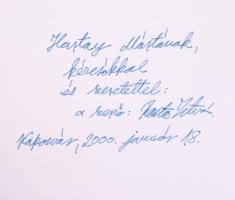 Hartay Mártának,
kézcsókkal
és szeretettel:
a szerző: István
Kaposvár, 2000. január 18.